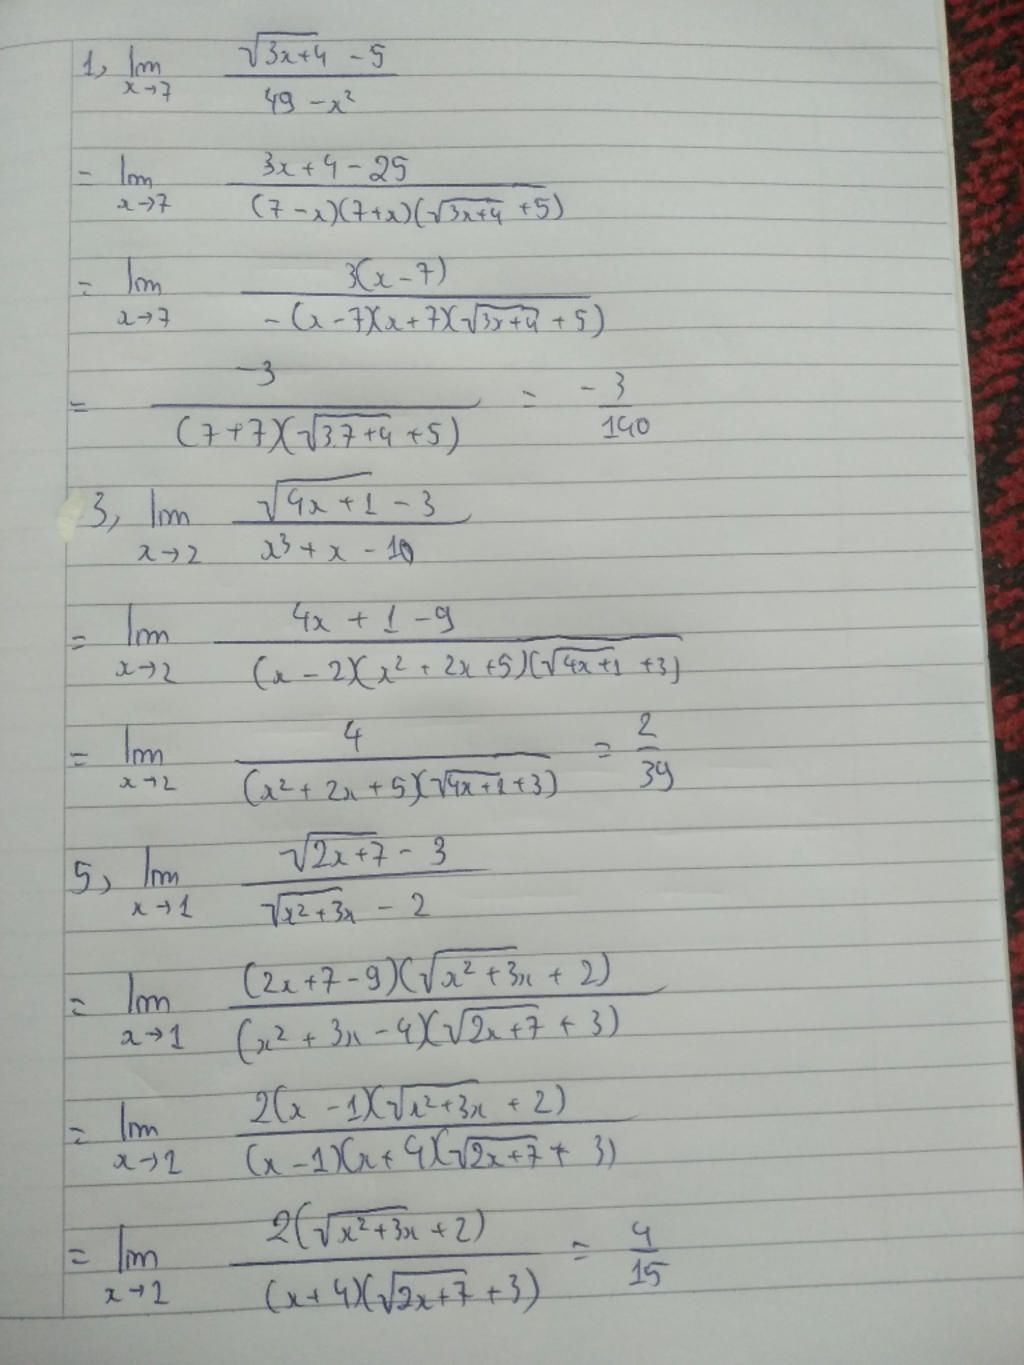 1, lim x→7 (√(3x+4) - 5)/(49 - x²)
= lim x→7 (3x + 4 - 25)/((7 - x)(7 + x)(√(3x+4) + 5))
= lim x→7 3(x - 7)/(-(x - 7)(x + 7)(√(3x+4) + 5))
= -3/((7 + 7)(√(3.7+4) + 5)) = -3/140
3, lim x→2 (√(4x+1) - 3)/(x³ + x - 10)
= lim x→2 (4x + 1 - 9)/((x - 2)(x² + 2x + 5)(√(4x+1) + 3))
= lim x→2 4/((x² + 2x + 5)(√(4x+1) + 3)) = 2/39
5, lim x→1 (√(2x+7) - 3)/(√(x²+3x) - 2)
= lim x→1 (2x + 7 - 9)(√(x²+3x) + 2)/((x² + 3x - 4)(√(2x+7) + 3))
= lim x→1 2(x - 1)(√(x²+3x) + 2)/((x - 1)(x + 4)(√(2x+7) + 3))
= lim x→1 2(√(x²+3x) + 2)/((x + 4)(√(2x+7) + 3)) = 4/15